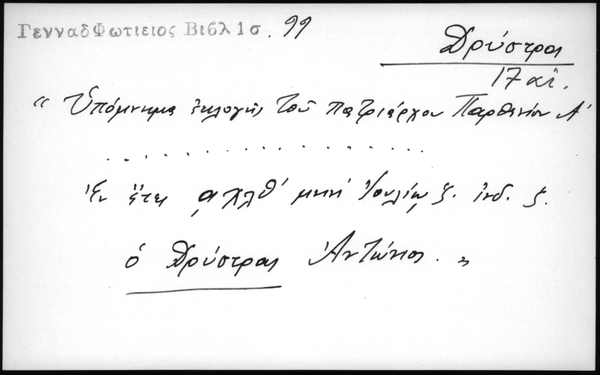 Γενναδ Φωτιειος Βιβλ 1σ. 99
Δρύστρας
17 αἰ.
“ Ὑπόμνημα ἐκλογῆς τοῦ πατριάρχου Παρθενίου Α΄
. . . . . . . . . . . . . . . . .
Ἐν ἔτει ͵αχλθ΄ μηνὶ Ἰουλίῳ ζ. ἰνδ. ζ.
ὁ Δρύστρας Ἀντώνιος. „